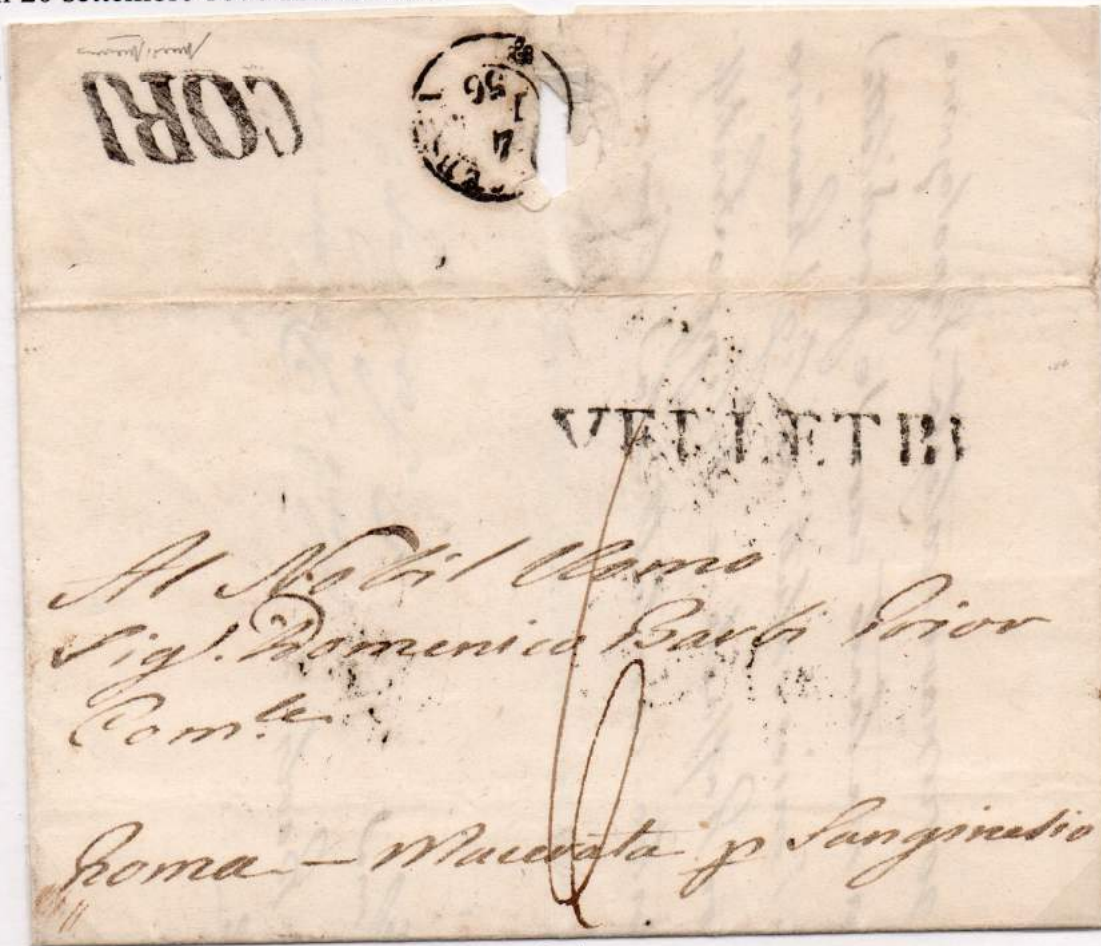 20 settembre
CORI
4
1
56
VELLETRI
Al Nobil Uomo
Sig. Domenico Barbi Prior
Com.le
Roma - Macerata p Sanginesio